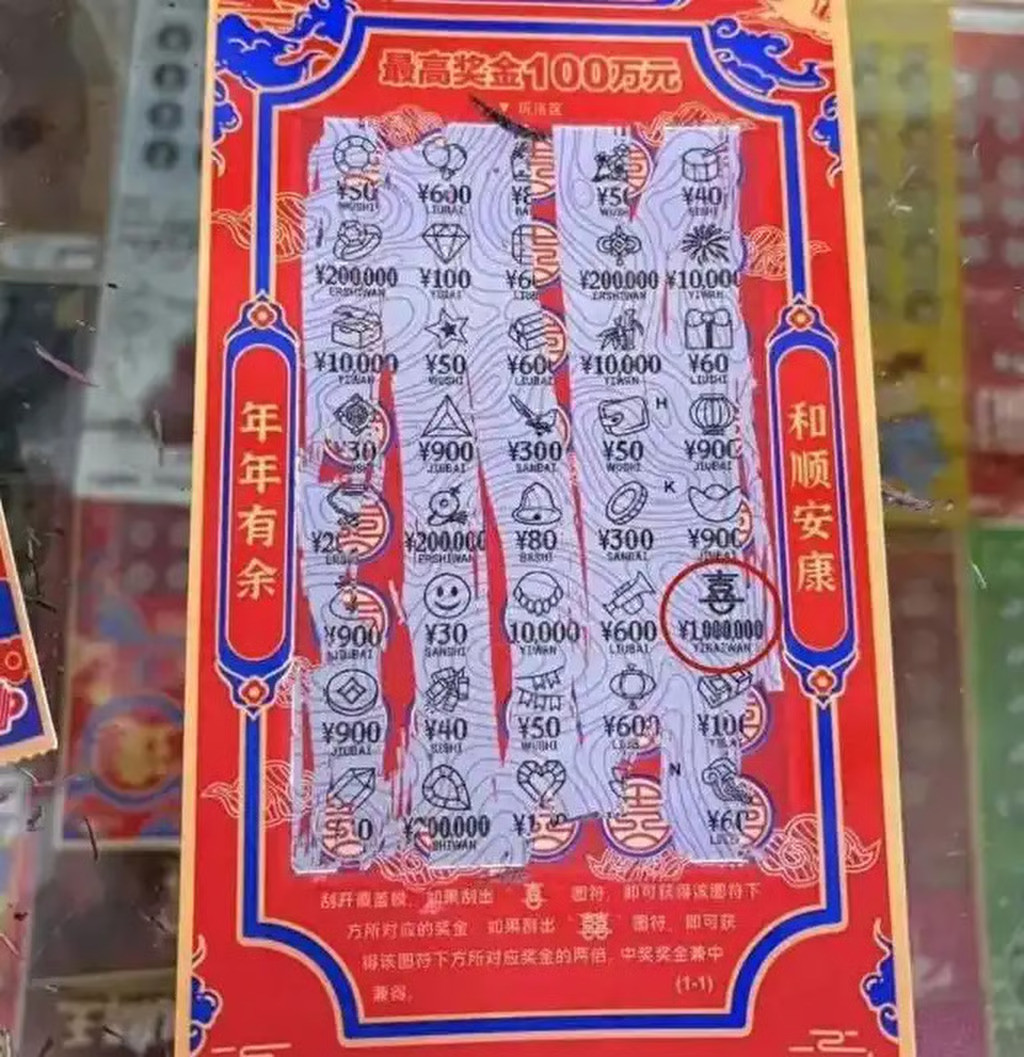 最高奖金100万元
▼ 玩法区
年年有余
和顺安康
¥50 ¥600 ¥8 ¥50 ¥40
WUSHI LIUBAI BA WUSH SISHI
¥200,000 ¥100 ¥60 ¥200,000 ¥10,000
ERSHIWAN YIBAI LIUB ERSHIWAN YIWAN
¥10,000 ¥50 ¥600 ¥10,000 ¥60
YIWAN WUSHI LIUBAI YIWAN LIUSHI
H
¥30 ¥900 ¥300 ¥50 ¥900
JIUBAI SANBAI WUSHI JIUBAI
K
¥20 ¥200,000 ¥80 ¥300 ¥900
ERSHIWAN BASHI SANBAI JIUBAI
喜
¥900 ¥30 10,000 ¥600 ¥1,000,000
JIUBAI SANSHI YIWAN LIUBAI YIBAIWAN
¥900 ¥40 ¥50 ¥600 ¥100
JIUBAI SISHI WUSHI
N
¥200,000 ¥6
SHIWAN
刮开覆盖膜，如果刮出 喜 图符，即可获得该图符下
方所对应的奖金 如果刮出 囍 图符，即可获
得该图符下方所对应奖金的两倍，中奖奖金兼中
兼得。 (1-1)